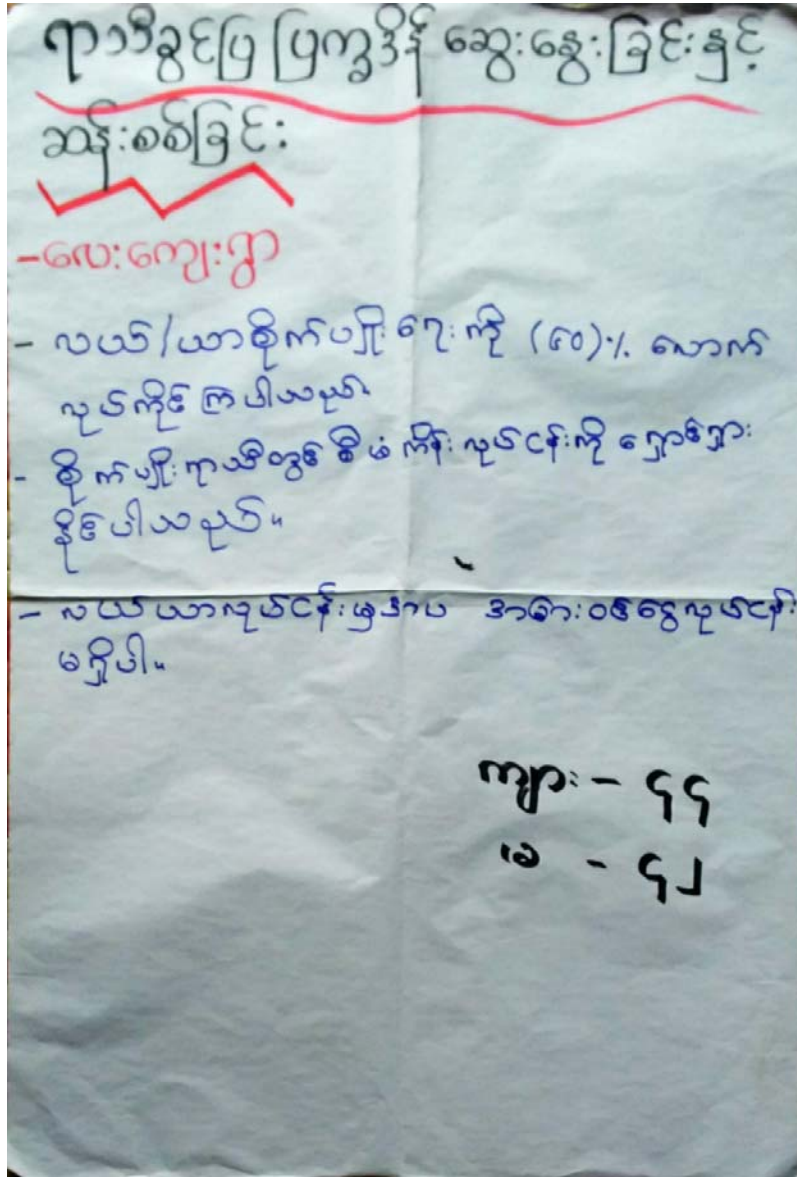 ရာသီခွင်ပြ ပြက္ခဒိန် ဆွေးနွေးခြင်းနှင့်
ဆန်းစစ်ခြင်း
-လေးကျေးရွာ
- လယ်/ယာစိုက်ပျိုးရေးကို (၉၀)% လောက်
လုပ်ကိုင်ကြပါသည်။
- စိုက်ပျိုးရာသီတွင် စီမံကိန်းလုပ်ငန်းကို ရှောင်ရှား
နိုင်ပါသည်။
- လယ်ယာလုပ်ငန်းမှအပ အခြားဝင်ငွေလုပ်ငန်း
မရှိပါ။
ကျား - ၄၄
မ - ၄၂